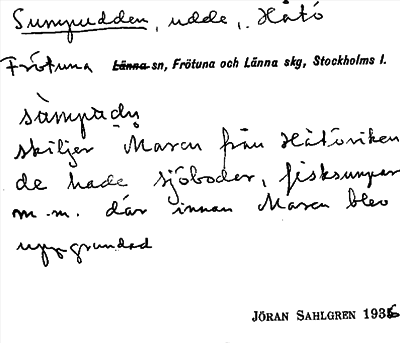 Sumpudden, udde, Håtö
Frötuna Länna sn, Frötuna och Länna skg, Stockholms l.
sàmpùdn
skiljer Maren från Håtöviken
de hade sjöbodar, fisksumpar
m.m. där innan Maren blev
uppgrundad
JÖRAN SAHLGREN 1936